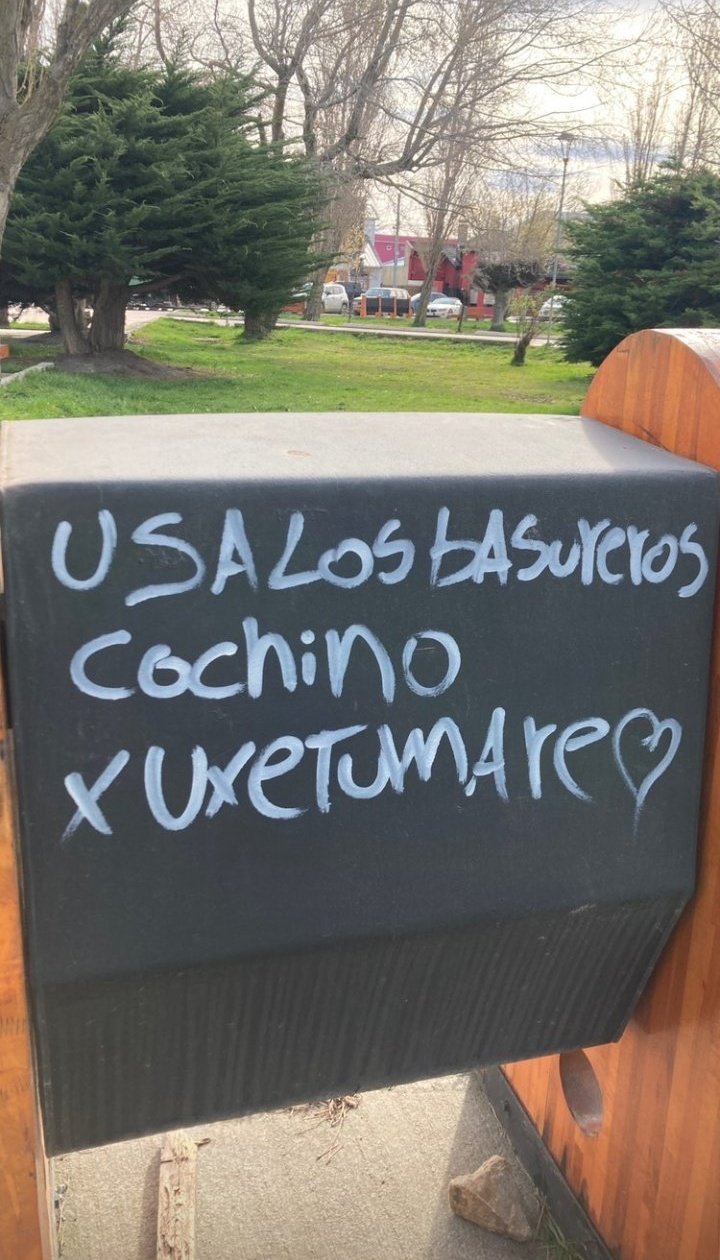 USA Los bASureros
cochino
xuxetumAre♡